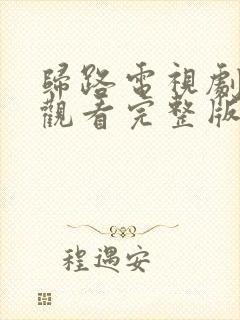 歸路電視劇
觀看完整版
程遇安